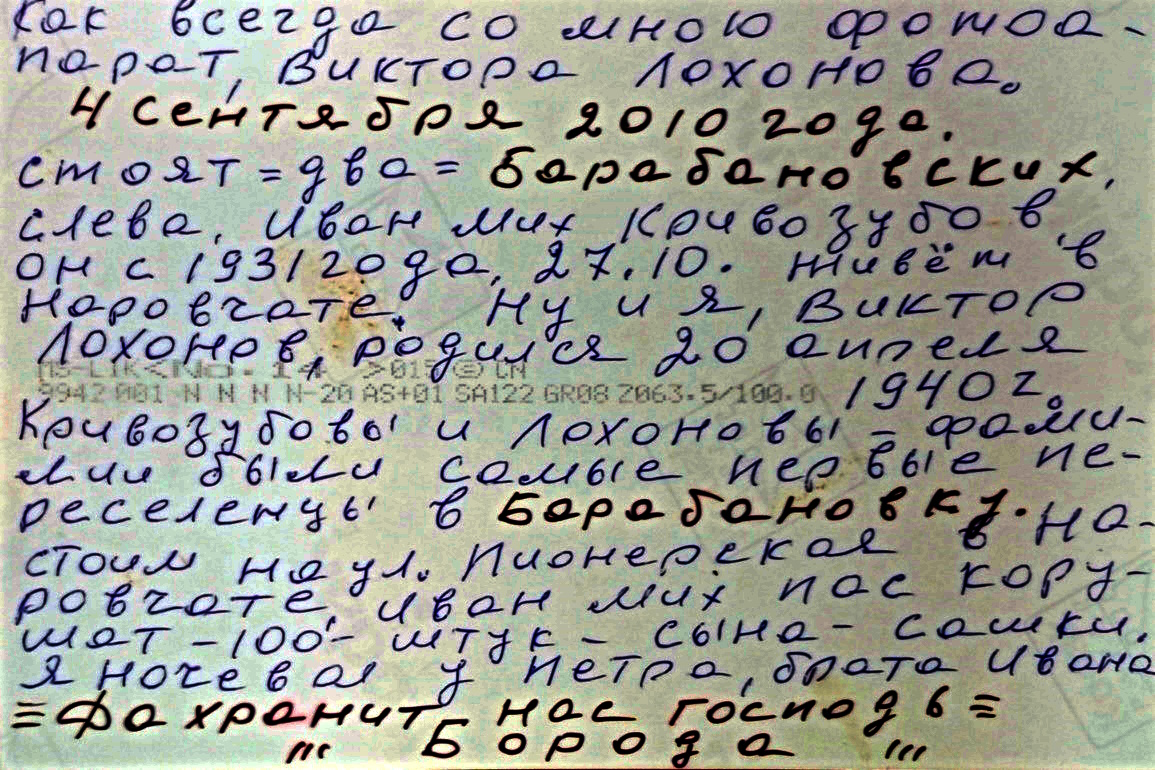 Как всегда со мною фотоа-
парат, Виктора Лохонова.
4 сентября 2010 года.
стоят = два = Барабановских,
слева, Иван мих Кривозубов
он с 1931 года, 27.10. живёт в
Наровчате. Ну и я, Виктор
Лохонов, родился 20 апреля
>015 CN
9942 001 N N N N-20 AS+01 SA122 GR08 Z063.5/100.0
1940 г.
Кривозубовы и Лохоновы - фами-
лии были самые первые пе-
реселенцы в Барабановку.
стоим на ул. Пионерская в На-
ровчате, Иван мих пас кору-
шат - 100 - штук - сына - сашки.
Я ночевал у Петра, брата Ивана
≡ Фа хранит нас господь ≡
,,, Борода ,,,